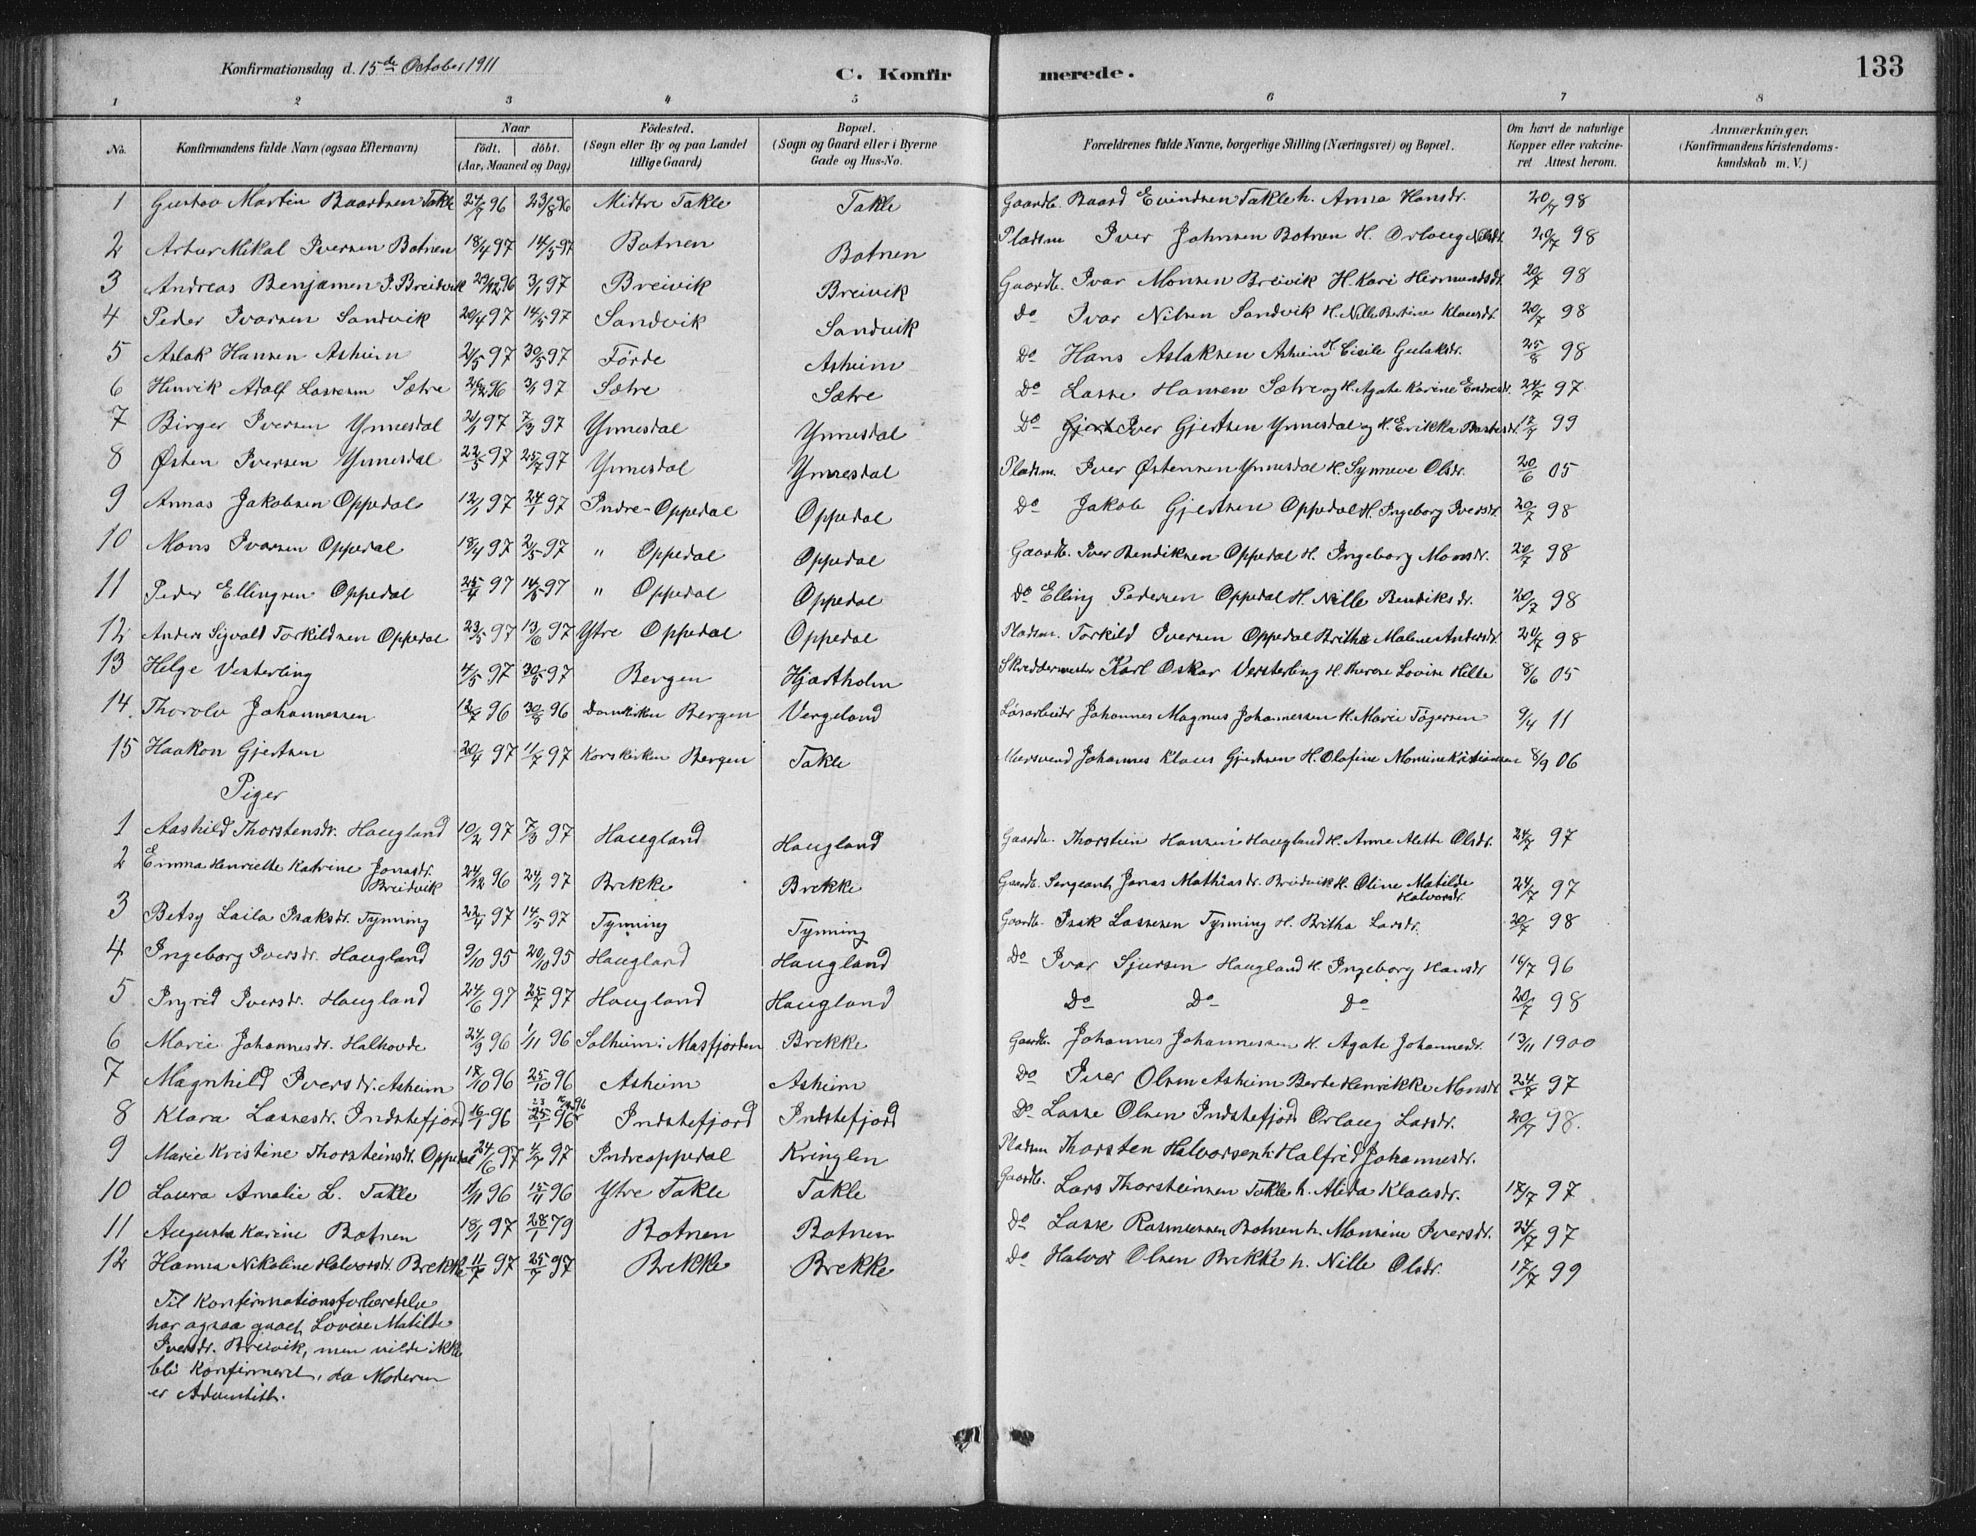 Konfirmationsdag d. 15de October 1911
C. Konfirmerede.
133
1 2 3 4 5 6 7 8
No.
Konfirmandens fulde Navn (ogsaa Efternavn)
Naar
födt. döbt.
(Aar, Maaned og Dag)
Födested.
(Sogn eller By og paa Landet
tillige Gaard)
Bopæl.
(Sogn og Gaard eller i Byerne
Gade og Hus-No.
Forældrenes fulde Navne, borgerlige Stilling (Næringsvei) og Bopæl.
Om havt de naturlige
Kopper eller vakcine-
ret Attest herom.
Anmærkninger.
(Konfirmandens Kristendoms-
kundskab m. V.)
1 Gustav Martin Baardsen Takle 96 23/8 96 Midtre Takle Takle Gaardb. Baard Evindsen Takle h. Anna Hansdr. 20/7 98
2 Artur Mikal Iversen Botnen 18/4 97 14/5 97 Botnen Botnen Pladsm Iver Johnsen Botnen H. Orlaug Nilsdr. 20/7 98
3 Andreas Benjamen I. Breidvik 29/12 96 3/1 97 Breivik Breivik Gaardb. Ivar Monsen Breivik H. Kari Hermundsdr. 20/7 98
4 Peder Ivarsen Sandvik 20/4 97 14/5 97 Sandvik Sandvik Do Ivar Nilsen Sandvik H. Nille Bertine Klausdr. 20/7 98
5 Aslak Hansen Asheim 2/5 97 30/5 97 Förde Asheim Do Hans Aslaksen Asheim H. Cisile Gulaksdr. 25/8 98
6 Henrik Adolf Lassesen Sætre 96 3/1 97 Sætre Sætre Do Lasse Hansen Sætre og H. Agate Karine Endresdr. 24/7 97
7 Birger Iversen Ynnesdal 2/1 97 7/3 97 Ynnesdal Ynnesdal Do Iver Gjertsen Ynnesdal og H. Erikka 17/7 99
8 Østen Iversen Ynnesdal 22/5 97 25/7 97 Ynnesdal Ynnesdal Pladsm. Iver Østensen Ynnesdal H. Synneve Olsdr. 20/6 05
9 Annas Jakobsen Oppedal 12/1 97 24/1 97 Indre-Oppedal Oppedal Do Jakob Gjertsen Oppedal H. Ingeborg Iversdr. 20/7 98
10 Mons Ivarsen Oppedal 18/4 97 2/5 97 " Oppedal Oppedal Gaardb. Iver Bendiksen Oppedal H. Ingeborg Monsdr. 20/7 98
11 Peder Ellingsen Oppedal 25/4 97 14/5 97 " Oppedal Oppedal Do Elling Pedersen Oppedal H. Nille Bendiksdr. 20/7 98
12 Anders Sigvald Torkildsen Oppedal 23/5 97 13/6 97 Ytre Oppedal Oppedal Pladsm. Torkild Iversen Oppedal Britha Malene Andersdr. 20/7 98
13 Helge Vesterling 4/5 97 30/5 97 Bergen Hjartholm Skreddermester Karl Oskar Vesterling H. Therese Lovise Hille 8/6 05
14. Thorolv Johannessen 12/7 96 30/8 96 Domkirken Bergen Vergeland Løsarbeidr Johannes Magnus Johannessen H. Marie Tögersen 9/4 11
15 Haakon Gjertsen 20/4 97 11/7 97 Korskirken Bergen Takle Murersvend Johannes Klaus Gjertsen H. Olafine Monsine Kristiansen 8/9 06
Piger
1 Aashild Thorstensdr. Haugland 10/2 97 7/3 97 Haugland Haugland Gaardb. Thorstein Hansen Haugland H. Anne Alette Olsdr. 24/7 97
2 Emma Henriette Katrine Jonasdr.
Breidvik 24/12 96 24/1 97 Brekke Brekke Gaardb. Sergeant Jonas Mathiasdr. Breidvik H. Oline Matilde
Halvorsdr. 24/7 97
3 Betsy Laila Isaksdr. Tynning 22/4 97 14/5 97 Tynning Tynning Gaardb. Isak Lassesen Tynning H. Britha Larsdr. 20/7 98
4 Ingeborg Iversdr. Haugland 9/10 95 20/10 95 Haugland Haugland Do Ivar Sjursen Haugland H. Ingeborg Hansdr 16/7 96
5 Ingrid Iversdr. Haugland 24/6 97 25/7 97 Haugland Haugland Do Do Do 20/7 98
6 Marie Johannesdr. Halhovde 24/9 96 1/11 96 Solheim i Masfjorden Brekke Gaardb. Johannes Johannessen H. Agate Johannesdr. 13/11 1900
7 Magnhild Iversdr. Asheim 18/10 96 25/10 96 Asheim Asheim Do Iver Olsen Asheim Berte Henrikke Monsdr 24/7 97
8 Klara Lassesdr. Indstefjord 16/1 96 25/1 96 Indstefjord Indstefjord Do Lasse Olsen Indstefjord Orlaug Larsdr. 20/7 98.
9 Marie Kristine Thorsteinsdr. Oppedal 24/6 97 4/7 97 Indreoppedal Kringlen Pladsm Thorsten Halvorsen h. Halfrid Johannesdr.
10 Laura Amalie L. Takle 1/11 96 15/11 96 Ytre Takle Takle Gaardb. Lars Thorsteinsen Takle h. Alida Klausdr. 17/7 97
11 Augusta Karine Botnen 18/1 97 28/1 79 Botnen Botnen Do Lasse Rasmussen Botnen h. Monsine Iversdr. 24/7 97
12 Hanna Nikoline Halvorsdr. Brekke 11/7 97 25/7 97 Brekke Brekke Do Halvor Olsen Brekke h. Nille Olsdr. 17/7 99
Til Konfirmationsforberedelse
har ogsaa gaaet Lovise Matilde
Iversdr. Breivik, men vilde ikke
bli Konfirmeret, da Moderen
er Adventist.